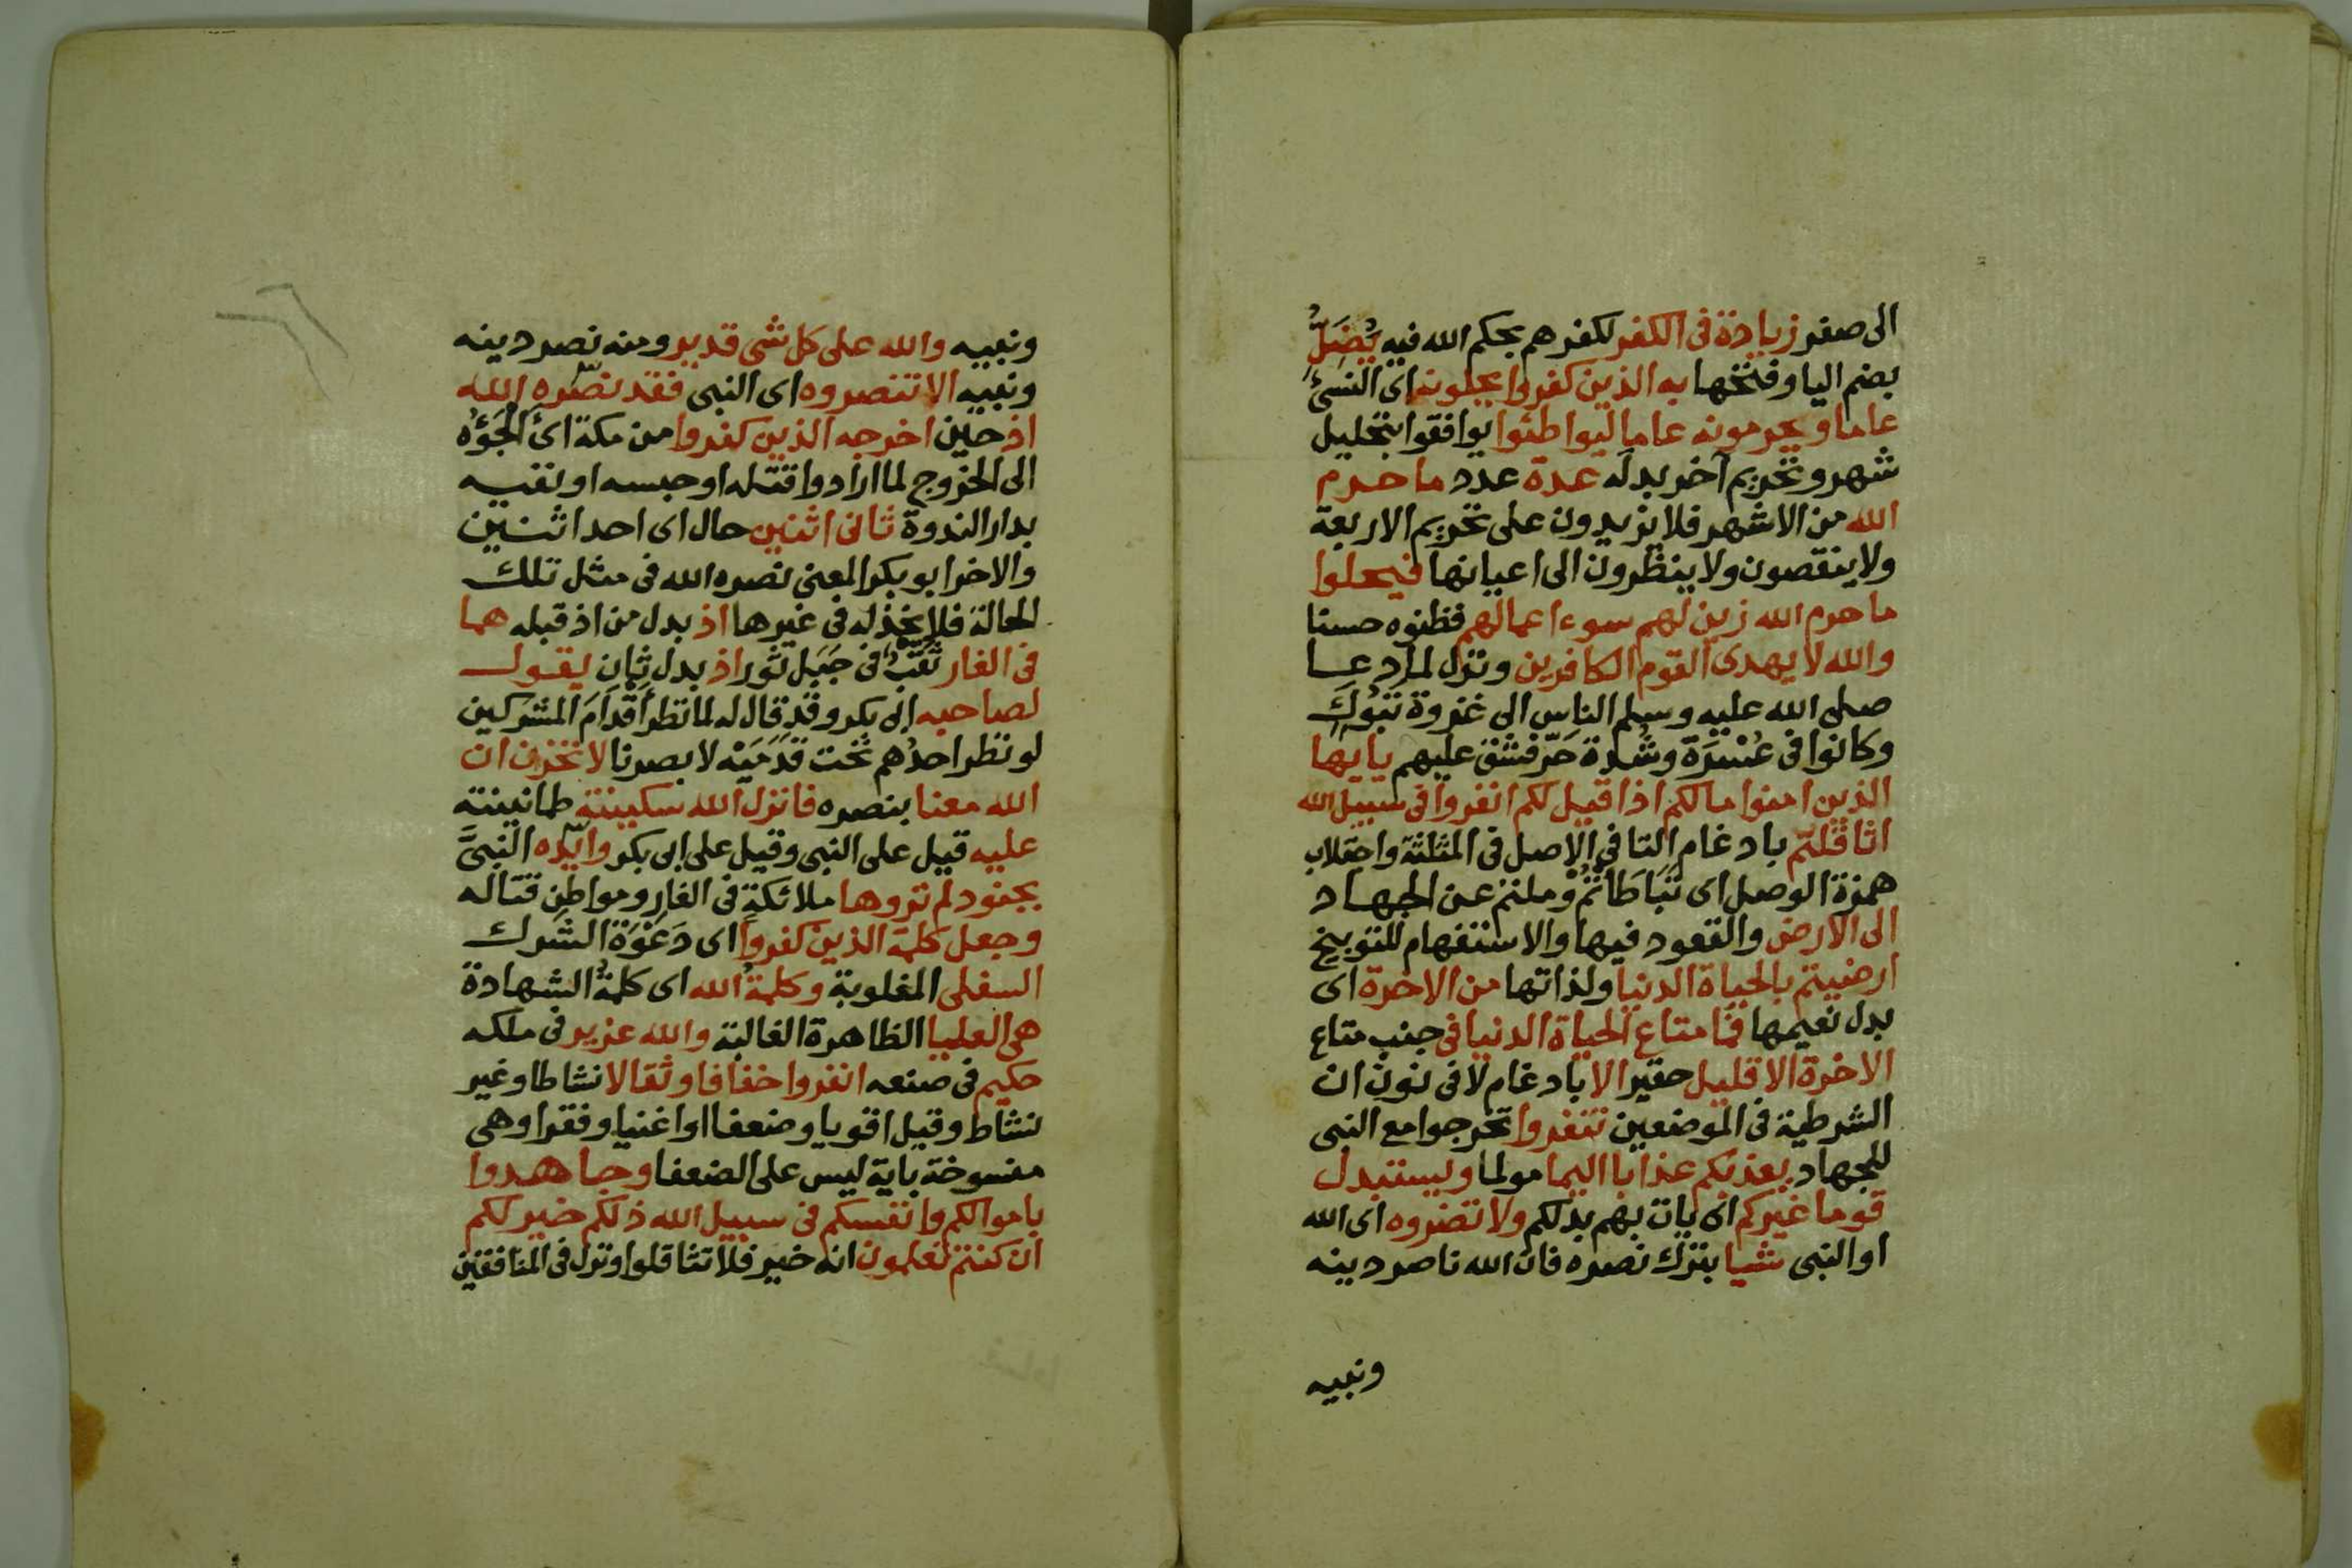 الى صفر زيادة فى الكفر لكفرهم بحكم الله فيه يُضَلُّ
بضم اليا وفتحها به الذين كفروا يحلونه اى النسئ
عاما ويحرمونه عاما ليواطئوا يوافقوا بتحليل
شهر وتحريم آخر بدله عدة عدد ما حرم
الله من الاشهر فلا يزيدون على تحريم الاربعة
ولا ينقصون ولا ينظرون الى اعيانها فيحلوا
ما حرم الله زين لهم سوء اعمالهم فظنوه حسنا
والله لا يهدى القوم الكافرين ونزل لما دعا
صلى الله عليه وسلم الناس الى غزوة تبوك
وكانوا فى عُسْرَة وشدة حَرّ فشق عليهم يايها
الذين امنوا مالكم اذا قيل لكم انفروا فى سبيل الله
اثاقلتم بادغام التا فى الاصل فى المثلثة واجتلاب
همزة الوصل اى تباطأتم وملتم عن الجهاد
الى الارض والقعود فيها والاستفهام للتوبيخ
ارضيتم بالحياة الدنيا ولذاتها من الاخرة اى
بدل نعيمها فما متاع الحياة الدنيا فى جنب متاع
الاخرة الا قليل حقير الا بادغام لا فى نون ان
الشرطية فى الموضعين تنفروا تخرجوا مع النبى
للجهاد يعذبكم عذابا اليما مولما ويستبدل
قوما غيركم اى يات بهم بدلكم ولا تضروه اى الله
او النبى شيا بترك نصره فان الله ناصر دينه
ونبيه
ونبيه والله على كل شى قدير ومنه نصر دينه
ونبيه الا تنصروه اى النبى فقد نصره الله
اذ حين اخرجه الذين كفروا من مكة اى الجَؤُه
الى الخروج لما ارادوا قتله او حبسه او نفيه
بدار الندوة ثانى اثنين حال اى احد اثنين
والاخر ابو بكر المعنى نصره الله فى مثل تلك
الحالة فلا يخذله فى غيرها اذ بدل من اذ قبله هما
فى الغار ثَقْبٌ فى جَبَل ثور اذ بدل ثان يقول
لصاحبه ابى بكر وقد قال له لما نظر أقدامَ المشركين
لو نظر احدُهم تحت قَدَمَيْه لا بصرنا لا تحزن ان
الله معنا بنصره فانزل الله سكينته طمانينته
عليه قيل على النبى وقيل على ابى بكر وايّده النبىَّ
بجنود لم تروها ملائكة فى الغار ومواطن قتاله
وجعل كلمة الذين كفروا اى دَعْوَة الشرك
السفلى المغلوبة وكلمةُ الله اى كلمةُ الشهادة
هى العليا الظاهرة الغالبة والله عزيز فى ملكه
حكيم فى صنعه انفروا خفافا وثقالا نشاطا وغير
نشاط وقيل اقويا وضعفا او اغنيا وفقرا وهى
منسوخة باية ليس على الضعفا وجاهدوا
باموالكم وانفسكم فى سبيل الله ذلكم خير لكم
ان كنتم تعلمون انه خير فلا تثاقلوا ونزل فى المنافقين